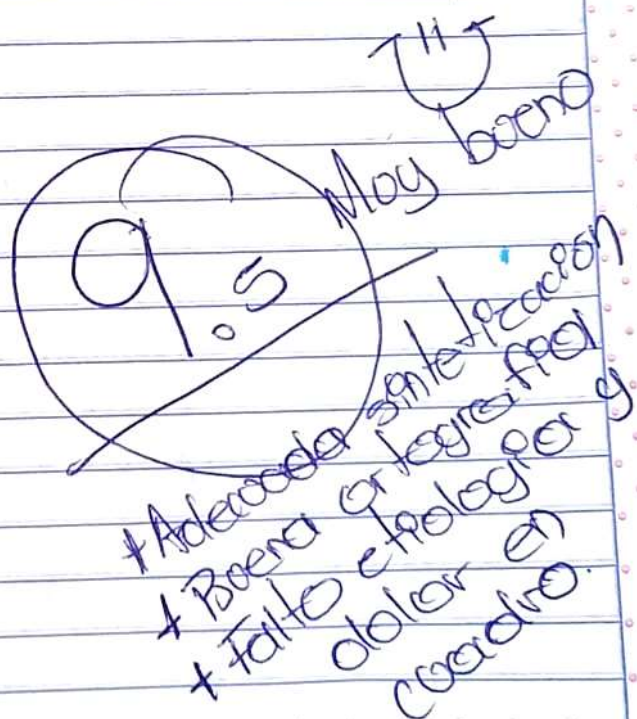 Muy bueno
9.5
+ Adecuada sintetización
+ Buena ortografía
+ Falto etiología y
dolor en
cuadro.